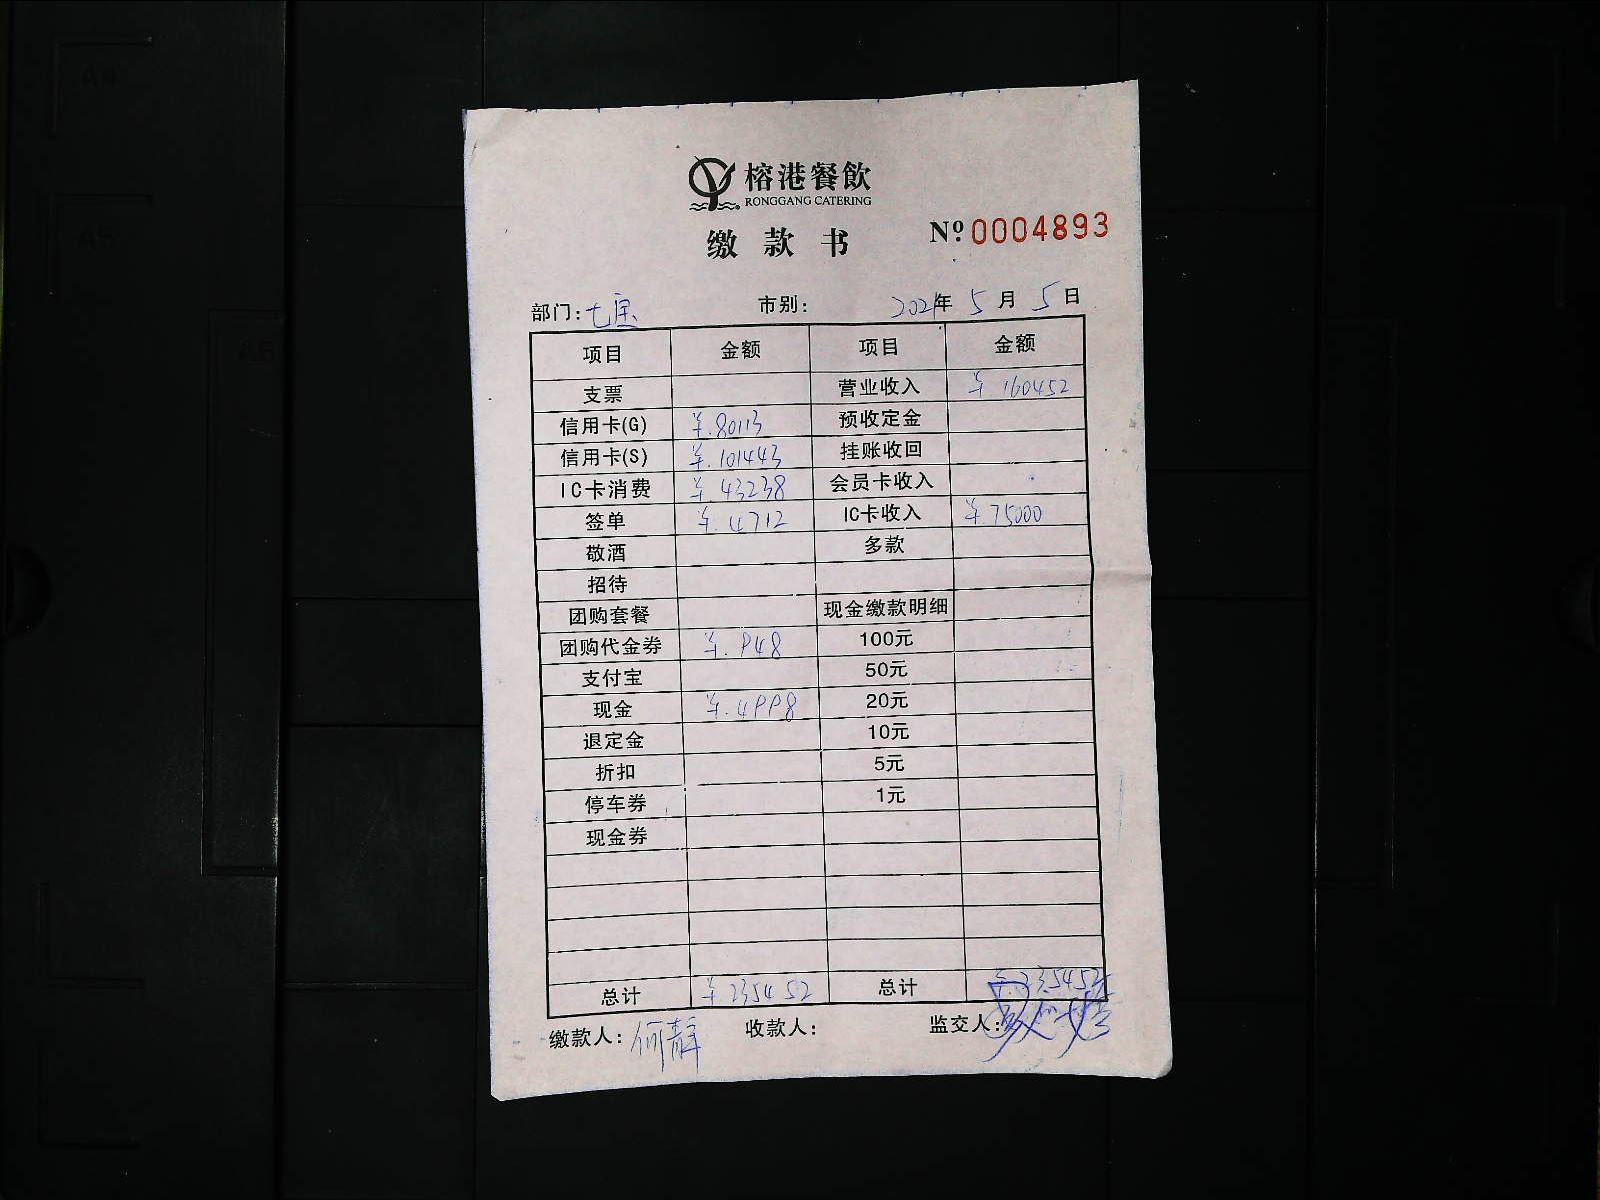 榕港餐飲
RONGGANG CATERING
缴款书 Nº 0004893
部门: 七宝 市别: 2021年 5月 5日
项目 金额 项目 金额
支票 营业收入 ¥160452
信用卡(G) ¥.80113 预收定金
信用卡(S) ¥.101443 挂账收回
IC卡消费 ¥.43238 会员卡收入
签单 ¥.4712 IC卡收入 ¥.75000
敬酒 多款
招待
团购套餐 现金缴款明细
团购代金券 ¥.948 100元
支付宝 50元
现金 ¥.4998 20元
退定金 10元
折扣 5元
停车券 1元
现金券
总计 ¥235452 总计 ¥.235452
缴款人: 何静 收款人: 监交人: